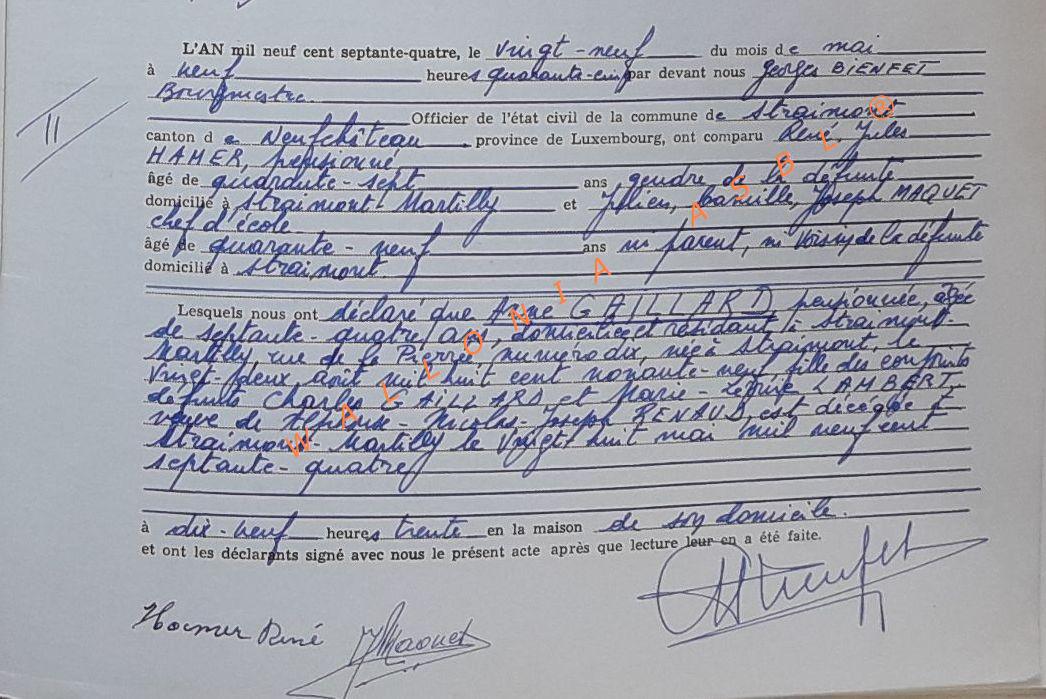 L'AN mil neuf cent septante-quatre, le vingt-neuf du mois de mai
à neuf heures quarante-cinq par devant nous Georges BIENFET
Bourgmestre
Officier de l'état civil de la commune de Straimont
11
canton de Neufchâteau, province de Luxembourg, ont comparu René, Jules
HAMER, pensionné
âgé de quarante-sept ans, gendre de la défunte
domicilié à Straimont-Martilly et Julien, Camille, Joseph MAQUET
chef d'école
âgé de quarante-neuf ans ni parent, ni voisin de la défunte
domicilié à Straimont
Lesquels nous ont déclaré que Anne GAILLARD pensionnée, âgée
de septante-quatre ans, domiciliée et résidant à Straimont-
Martilly, rue de la Pierre, numéro dix, née à Straimont, le
vingt-deux août mil huit cent nonante-neuf, fille des conjoints
défunts Charles GAILLARD et Marie- LAMBERT,
veuve de Alphonse-Nicolas-Joseph RENAUD, est décédée à
Straimont-Martilly le vingt-huit mai mil neuf cent
septante-quatre
à dix-neuf heures trente en la maison de son domicile.
et ont les déclarants signé avec nous le présent acte après que lecture leur en a été faite.
Hamer René JMaquet
WALLONIA ASBL @